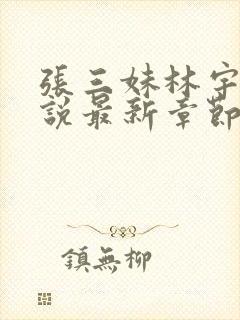 張三妹林宇
說最新章節
鎮無柳